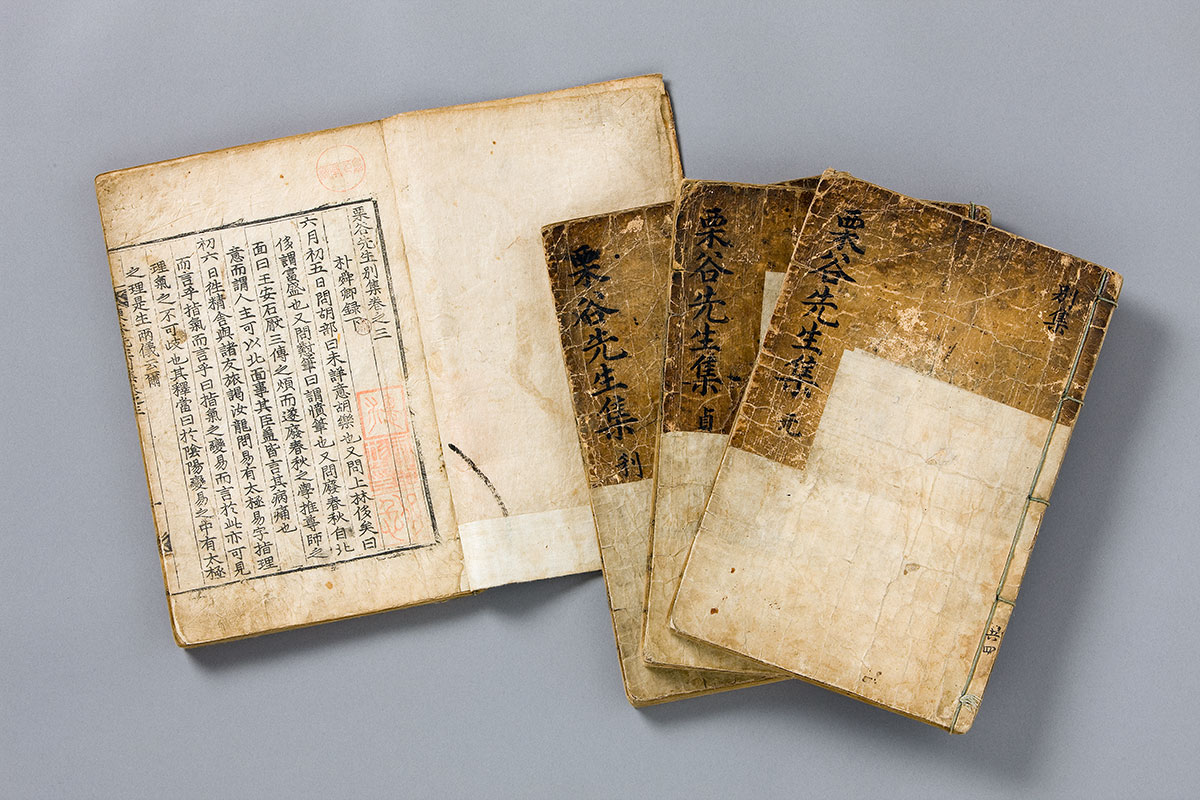 栗谷先生別集卷之三
朴舜卿錄下
六月初五日問胡部曰未詳意胡樂也又問上林侈矣曰
侈謂富盛也又問懟筆曰謂憤筆也又問廢春秋自北
面曰王安石厭三傳之煩而遂廢春秋之學推尊師之
意而謂人主可以北面事其臣蓋皆言其病痛也
初六日往精舍與諸友旅謁汝龍問易有太極易字指理
而言乎指氣而言乎曰指氣之變易而言於此亦可見
理氣之不可歧也其釋當曰於陰陽變易之中有太極
之理是生兩儀云爾
栗谷先生集 利
栗谷先生集 貞
栗谷先生集 元
別集
共四